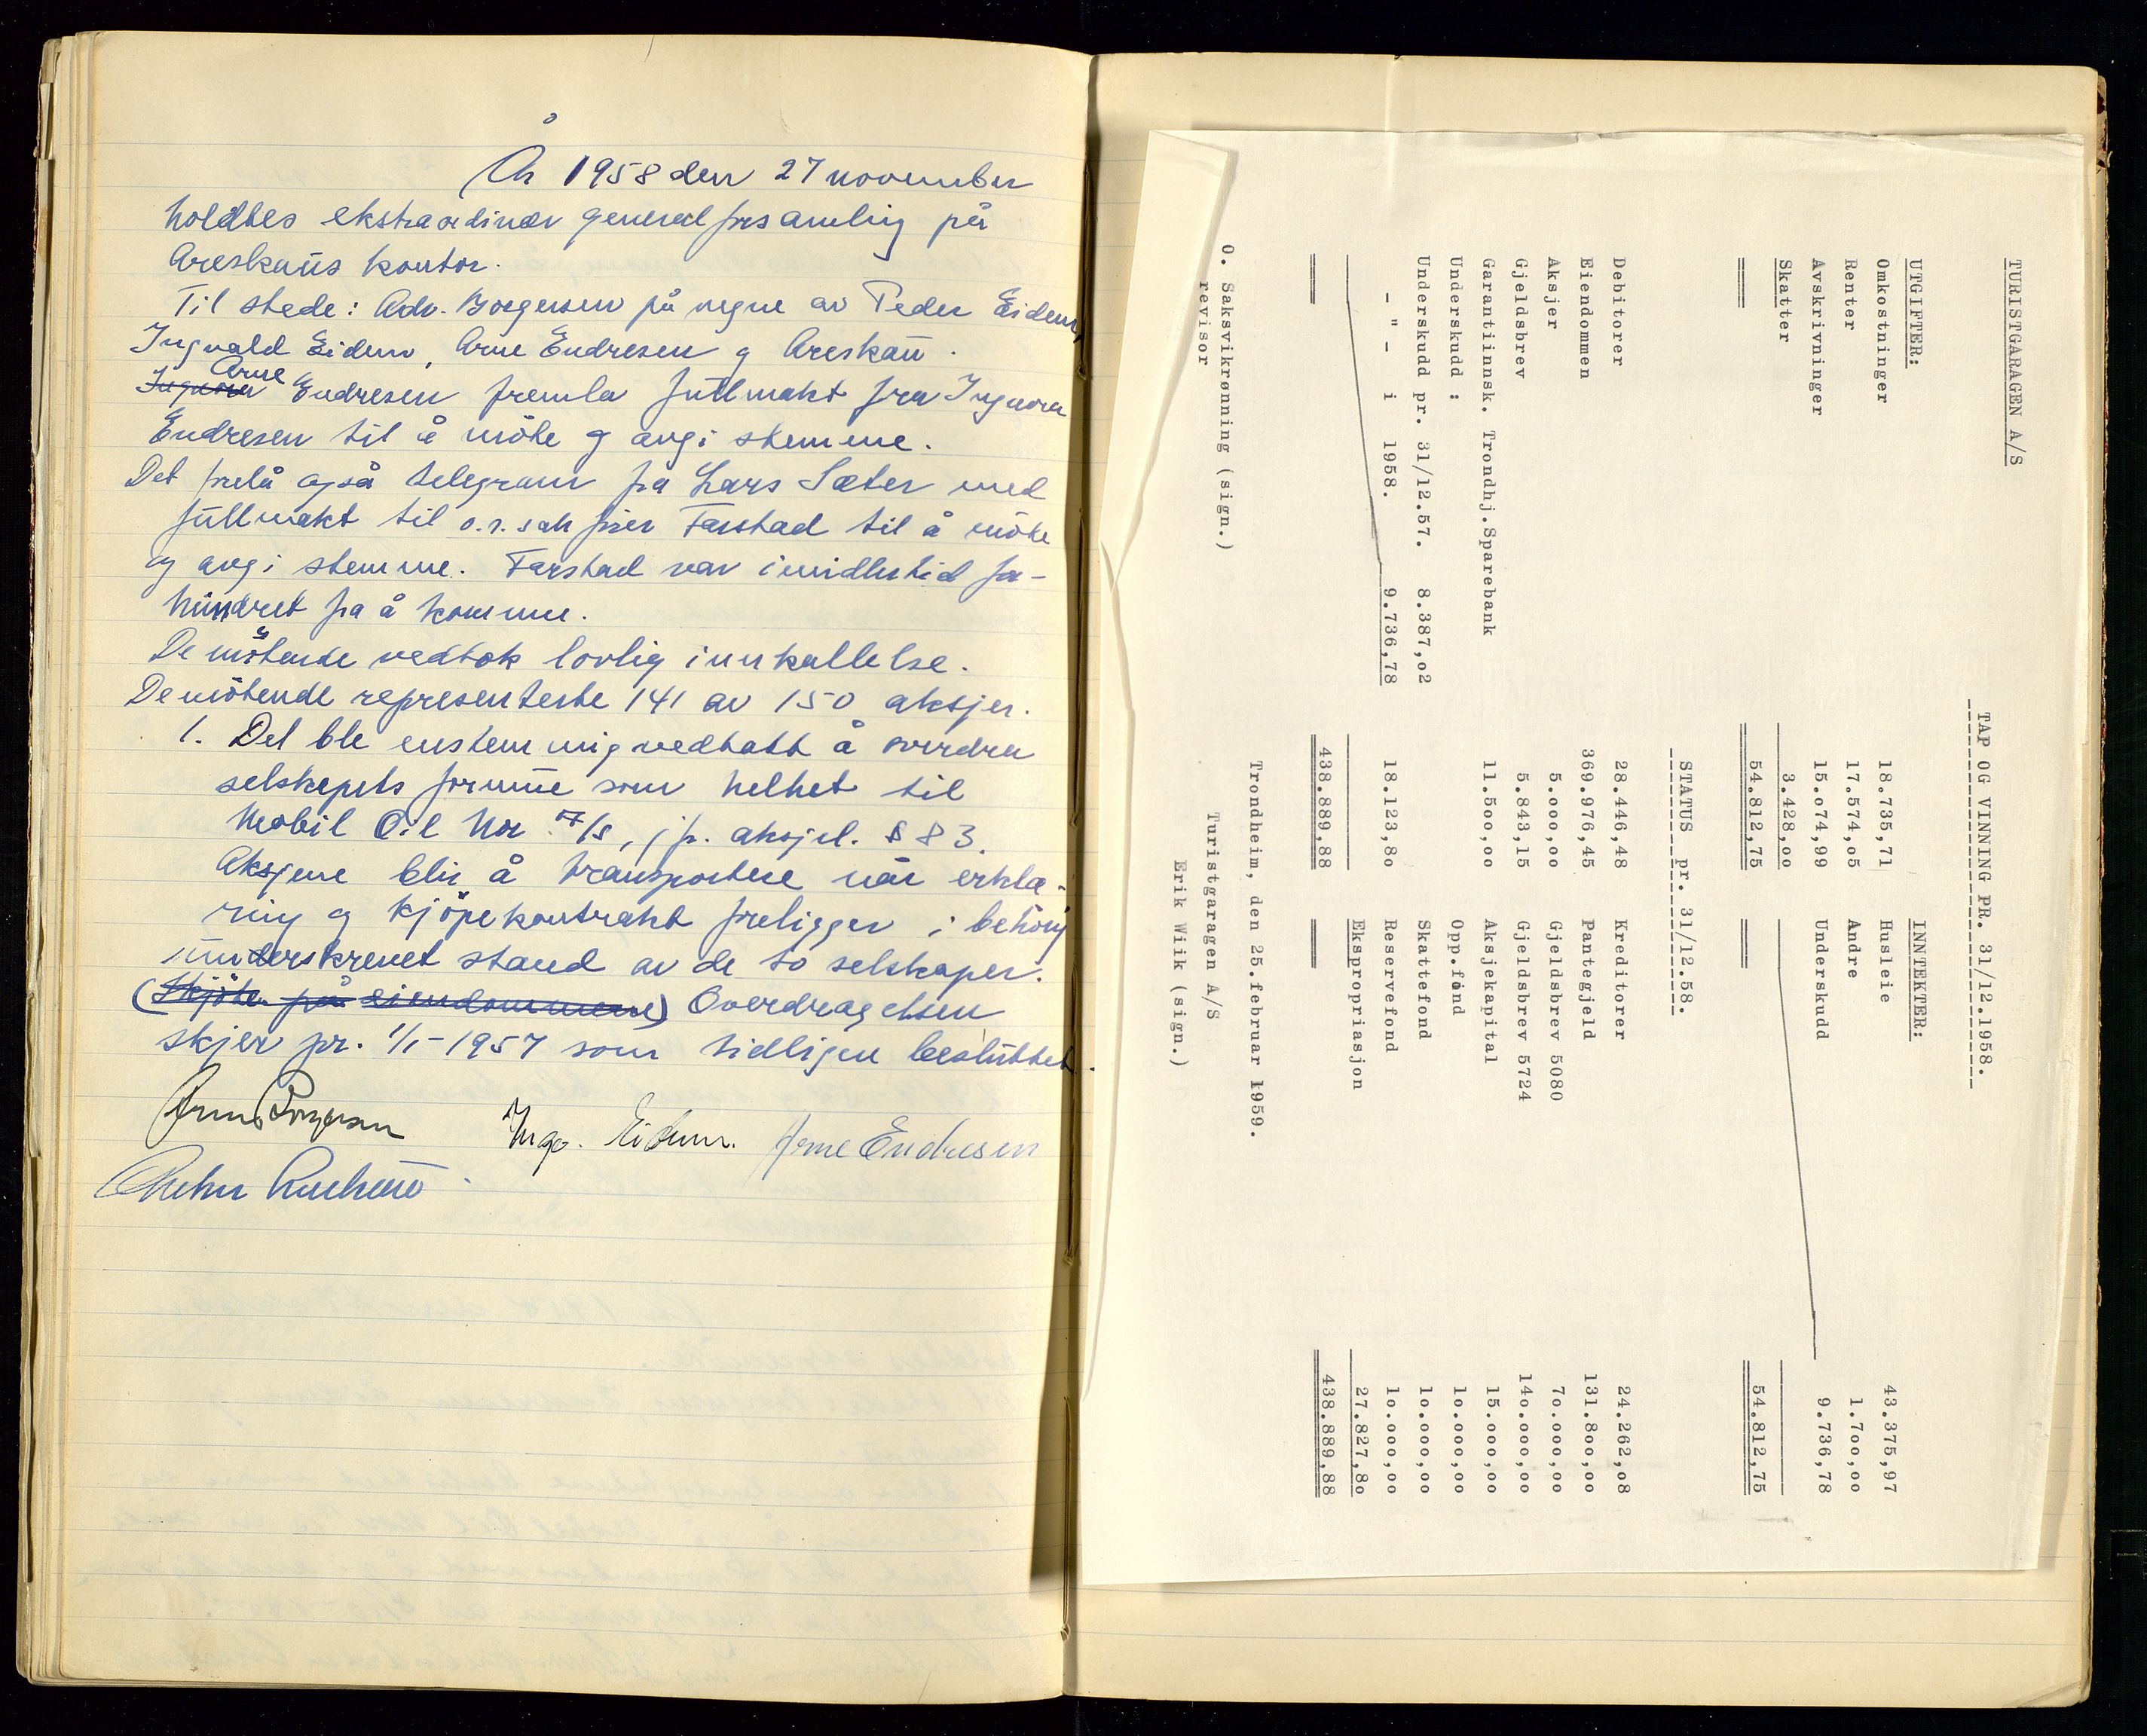 År 1958 den 27 november
holdtes ekstraordinær generalforsamling på
Areskaus kontor.
Til stede: Adv. Borgersen på vegne av Peder Eidem,
Ingvald Eidem, Arne Endresen og Areskau.
Ingvora Arne Endresen fremla fullmakt fra Ingvora
Endresen til å möte og avgi stemme.
Det forelå også telegram fra Lars Sæter med
fullmakt til o.r.sakfører Farstad til å möte
og avgi stemme. Farstad var imidlertid for-
hindret fra å komme.
De mötende vedtok lovlig innkallelse.
De mötende representerte 141 av 150 aksjer.
1. Det ble enstemmig vedtatt å overdra
selskapets formue som helhet til
Mobil Oil Nor. A/S, jfr. aksjel. § 83.
Aksjene blir å transportere når erklæ-
ring og kjöpekontrakt foreligger i behörig
underskrevet stand av de to selskaper.
(Skjöte på eiendommene) Overdragelsen
skjer pr. 1/1-1957 som tidligere besluttet.
Arne Borgersen Ingv. Eidem. Arne Endresen
TURISTGARAGEN A/S
TAP OG VINNING PR. 31/12.1958.
UTGIFTER: INNTEKTER:
Omkostninger 18.735,71 Husleie 43.375,97
Renter 17.574,o5 Andre 1.7oo,oo
Avskrivninger 15.o74,99 Underskudd 9.736,78
Skatter 3.428,oo
54.812,75 54.812,75
STATUS pr. 31/12.58.
Debitorer 28.446,48 Kreditorer 24.262,o8
Eiendommen 369.976,45 Pantegjeld 131.8oo,oo
Aksjer 5.ooo,oo Gjeldsbrev 5080 7o.ooo,oo
Gjeldsbrev 5.843,15 Gjeldsbrev 5724 14o.ooo,oo
Garantiinnsk. Trondhj.Sparebank 11.5oo,oo Aksjekapital 15.ooo,oo
Underskudd : Opp.fond 1o.ooo,oo
Underskudd pr. 31/12.57. 8.387,o2 Skattefond 1o.ooo,oo
- " - i 1958. 9.736,78 18.123,8o Reservefond 1o.ooo,oo
Ekspropriasjon 27.827,8o
438.889,88 438.889,88
Trondheim, den 25.februar 1959.
O. Saksvikrønning (sign.)
revisor
Turistgaragen A/S
Erik Wiik (sign.)